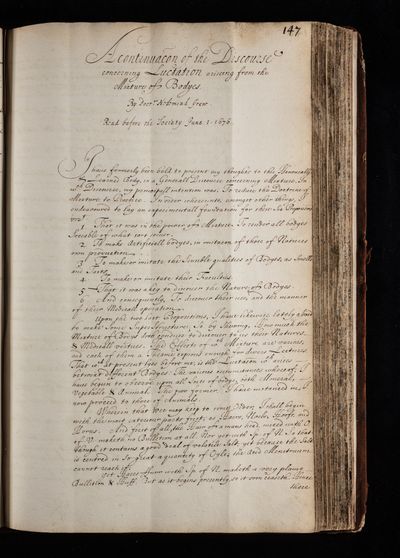 147
A continuacon of the Discourse
concerning Luctation arising from the
Mixture of Bodyes
By Doctr Nehemiah Grew
Read before the Society June 1. 1676.
I have formerly been bold to present my thoughts to this Honourable
& Learned Body, in a Generall Discourse concerning Mixture. In
wch Discourse, my principall intention was, To reduce the Doctrine of
Mixture to Practice. In order whereunto, amongst other things, I
endeavoured to lay an experimentall foundation for these six Propositions
vizt
1 That it is in the power of a Mixture To render all bodyes
sociable of what sort soever.
2. To make Artificiall bodyes, in imitacon of those of Natures
own production.
3 To make or imitate the sensible qualities of Bodyes, as Smells
and Tasts
4. To make or imitate their Faculties.
5 That it was a key to discover the Nature of Bodyes
6 And consequently, To discover their use, and the manner
of their Medicall operation.
Upon the two last Propositions, I have likewise lately
to make some Superstructure; So by shewing, How much the
Mixture of Bodyes doth conduce to discover to us their Natures
& Medicall vertues. The Effects of wch Mixture are various,
and each of them a Theame copious enough for divers Lectures
That wch at present lyes before me, is the Luctation wch arises
between different Bodyes. The various circumstances whereof, I
have begun to observe upon all sorts of bodyes, both Minerall,
Vegetable & Animal. The two former I have mentioned
now proceed to those of Animals
Wherein that we may keep to some Order, I shall begin
with the most excrementous parts first; as Haire, Nails, Hoofs and
Hornes. And first of all, the Hair of a mans head, mixed with O
of V. maketh no Bullition at all. Nor yet with Sp. of N. So that
though it contains a good deal of volatile Salt, yet because the Salt
is centred in so great a quantity of Oyle, the Acid Menstruum
cannot reach it.
Yet Hares Haire with Sp. of N. maketh a very plaine
Bullition & Huff. But as it begins presently, so it soon ceaseth. Hence
those